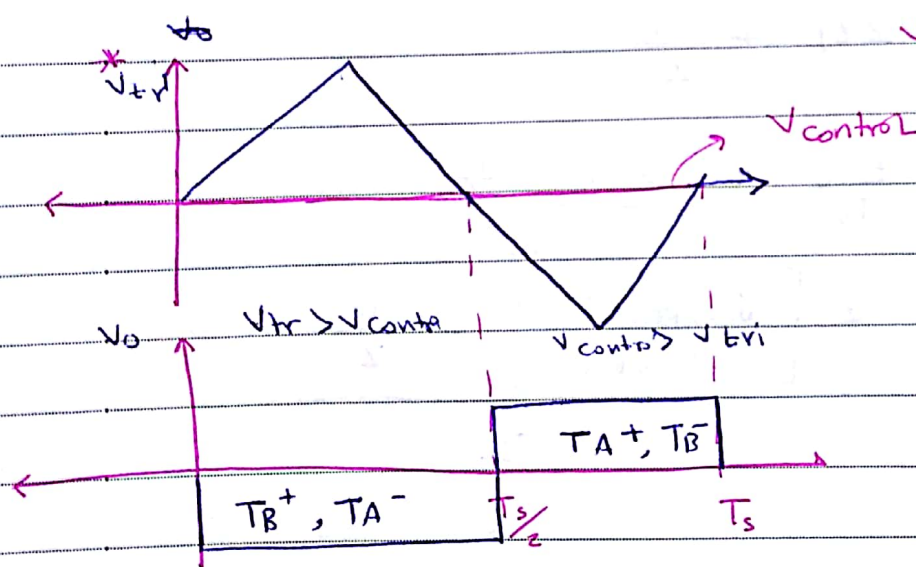 Vo
Vtr
Vcontrol
Vtr > Vcontro
Vcontro > Vtri
Vo
TA+, TB-
TB+, TA-
Ts/2
Ts